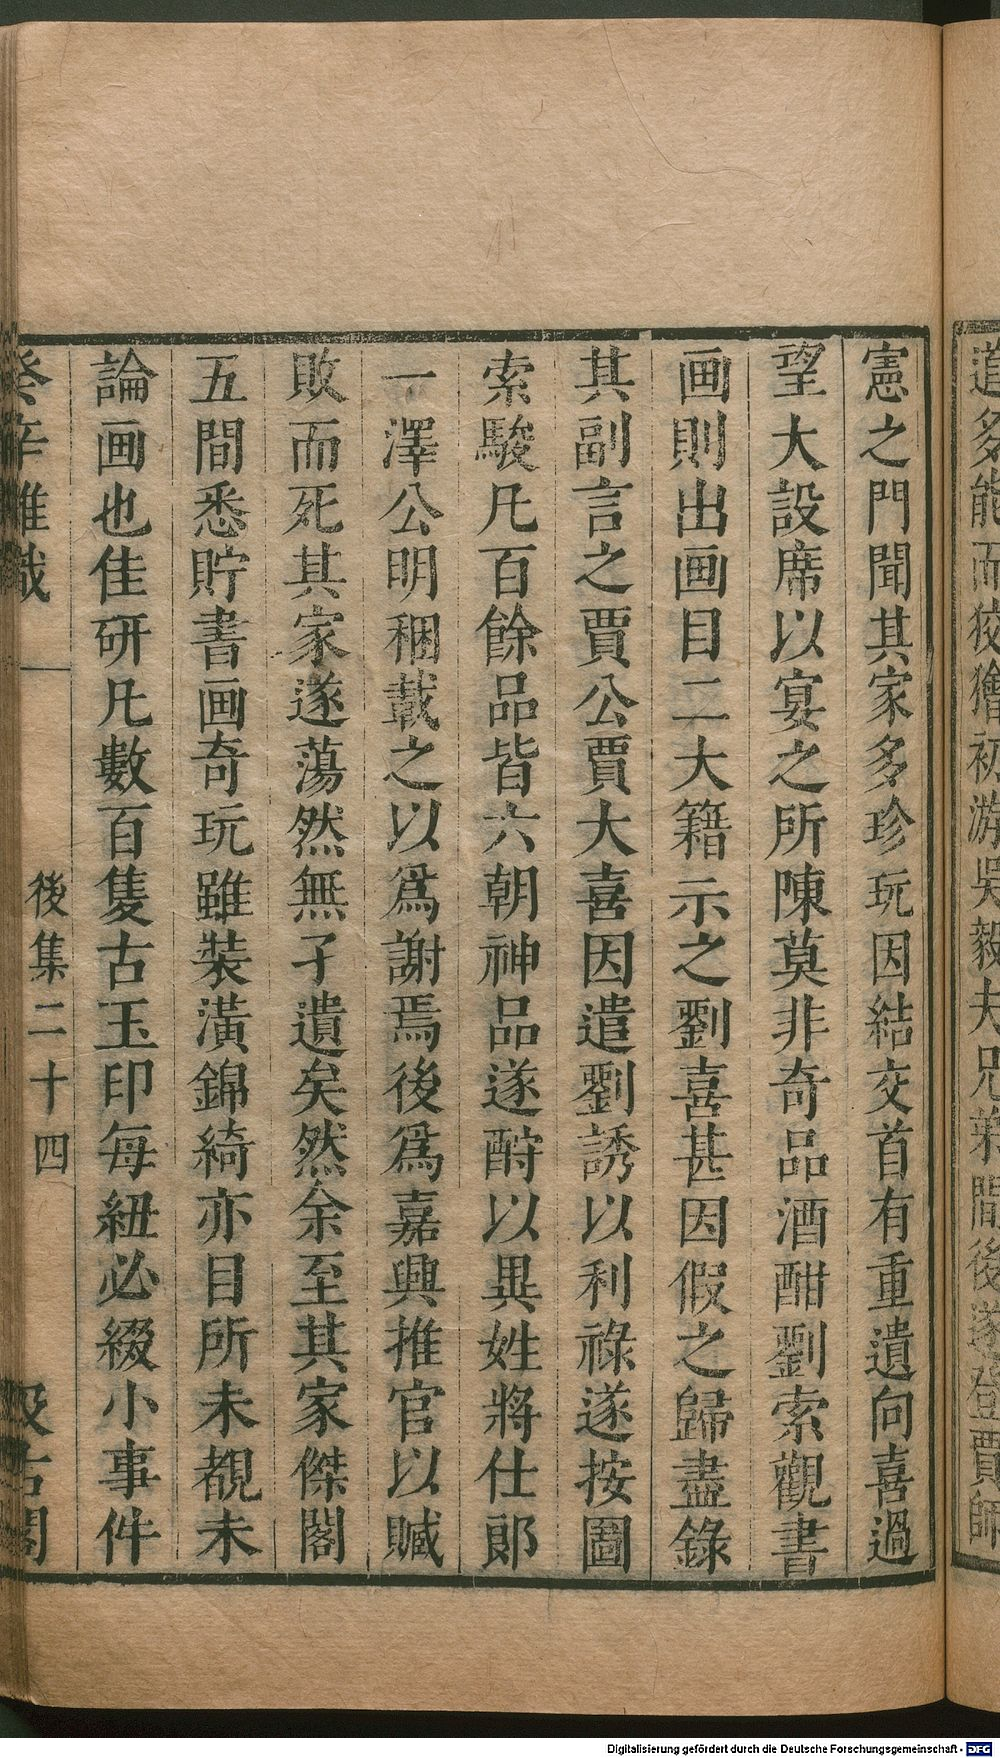 道多能而狡獪初游吳毅夫兄弟間後遂登賈師
憲之門聞其家多珍玩因結交首有重遺向喜過
望大設席以宴之所陳莫非奇品酒酣劉索觀書
画則出画目二大籍示之劉喜甚因假之歸盡錄
其副言之賈公賈大喜因遣劉誘以利祿遂按圖
索駿凡百餘品皆六朝神品遂酧以異姓將仕郎
一澤公明稛載之以爲謝焉後爲嘉興推官以贓
敗而死其家遂蕩然無孑遺矣然余至其家傑閣
五間悉貯書画奇玩雖裝潢錦綺亦目所未覩未
論画也佳研凡數百隻古玉印每紐必綴小事件
癸辛雜識 後集二十四 汲古閣
Digitalisierung gefördert durch die Deutsche Forschungsgemeinschaft - DFG